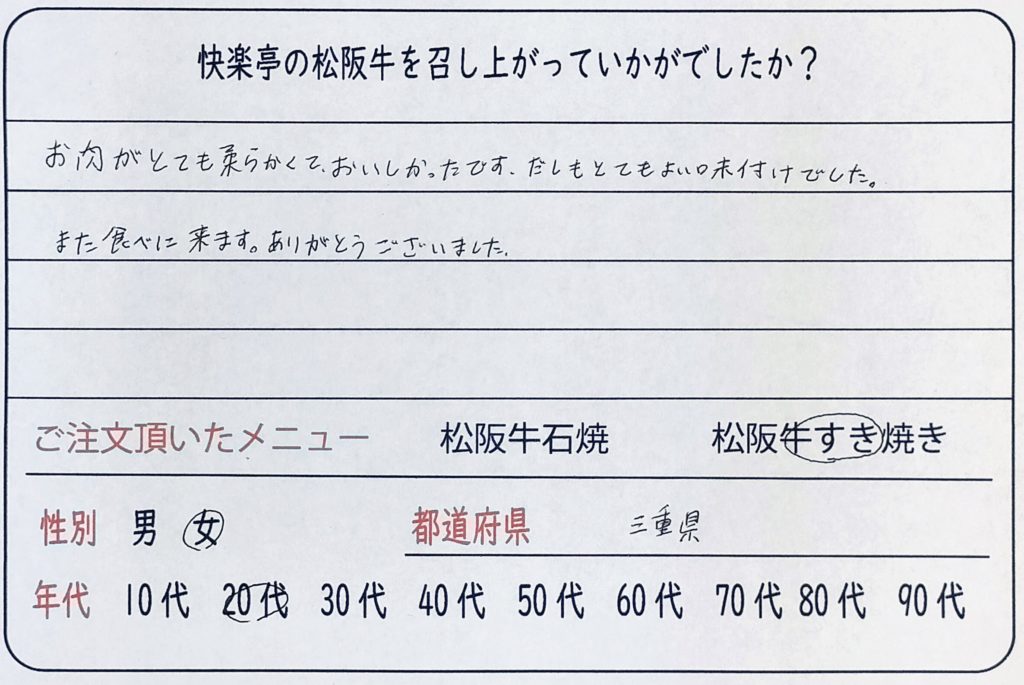 快楽亭の松阪牛を召し上がっていかがでしたか？
お肉がとても柔らかくて、おいしかったです、だしもとてもよい味付けでした。
また食べに来ます。ありがとうございました。
ご注文頂いたメニュー 松阪牛石焼 松阪牛すき焼き
性別 男 女 都道府県 三重県
年代 10代 20代 30代 40代 50代 60代 70代 80代 90代